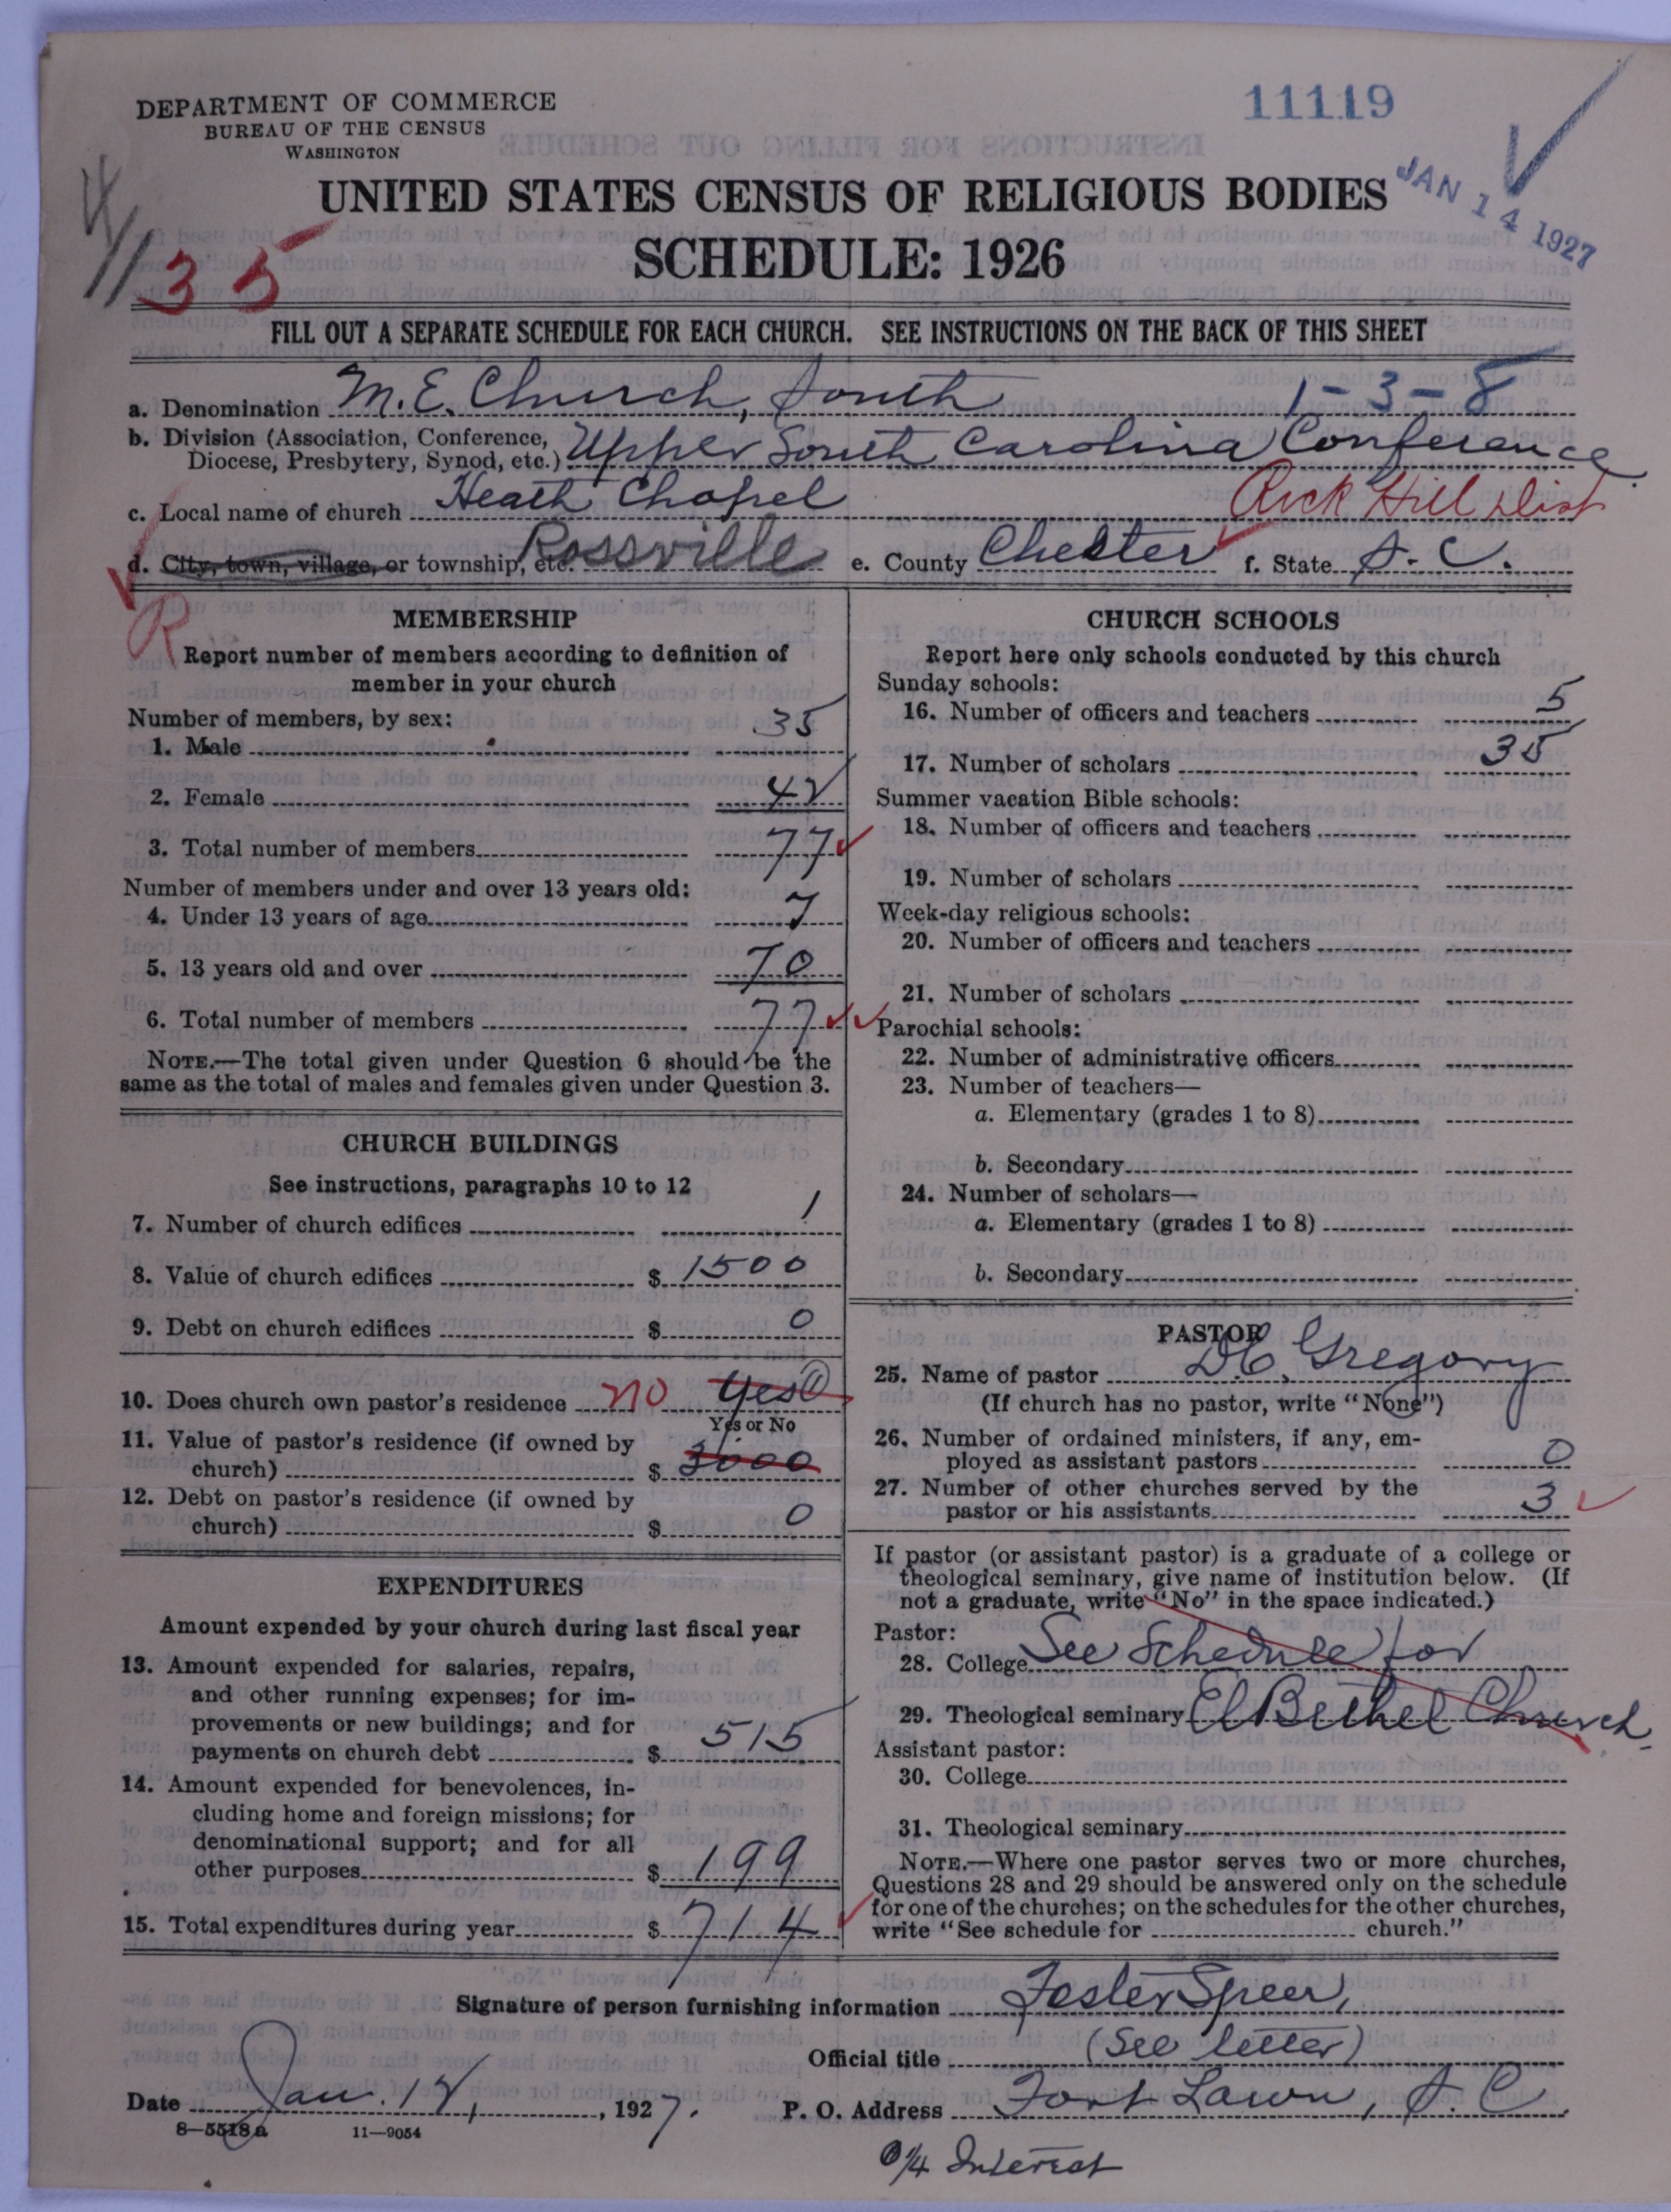 DEPARTMENT OF COMMERCE
BUREAU OF THE CENSUS
WASHINGTON
11119
JAN 14 1927
UNITED STATES CENSUS OF RELIGIOUS BODIES
SCHEDULE: 1926
35
FILL OUT A SEPARATE SCHEDULE FOR EACH CHURCH. SEE INSTRUCTIONS ON THE BACK OF THIS SHEET
a. Denomination M.E. Church, South 1-3-8
b. Division (Association, Conference,
Diocese, Presbytery, Synod, etc.) Upper South Carolina Conference
c. Local name of church Heath Chapel Rock Hill Dist
d. City, town, village, or township, etc. Rossville e. County Chester f. State S.C.
R
MEMBERSHIP
Report number of members according to definition of
member in your church
Number of members, by sex:
1. Male 35
2. Female 42
3. Total number of members 77
Number of members under and over 13 years old:
4. Under 13 years of age 7
5. 13 years old and over 70
6. Total number of members 77
NOTE.—The total given under Question 6 should be the
same as the total of males and females given under Question 3.
CHURCH BUILDINGS
See instructions, paragraphs 10 to 12
7. Number of church edifices 1
8. Value of church edifices $ 1500
9. Debt on church edifices $ 0
10. Does church own pastor's residence no Yes ①
Yes or No
11. Value of pastor's residence (if owned by
church) $ 3000
12. Debt on pastor's residence (if owned by
church) $ 0
EXPENDITURES
Amount expended by your church during last fiscal year
13. Amount expended for salaries, repairs,
and other running expenses; for im-
provements or new buildings; and for
payments on church debt $ 515
14. Amount expended for benevolences, in-
cluding home and foreign missions; for
denominational support; and for all
other purposes $ 199
15. Total expenditures during year $ 714
CHURCH SCHOOLS
Report here only schools conducted by this church
Sunday schools:
16. Number of officers and teachers 5
17. Number of scholars 35
Summer vacation Bible schools:
18. Number of officers and teachers
19. Number of scholars
Week-day religious schools:
20. Number of officers and teachers
21. Number of scholars
Parochial schools:
22. Number of administrative officers
23. Number of teachers—
a. Elementary (grades 1 to 8)
b. Secondary
24. Number of scholars—
a. Elementary (grades 1 to 8)
b. Secondary
PASTOR
25. Name of pastor D.C. Gregory
(If church has no pastor, write "None")
26. Number of ordained ministers, if any, em-
ployed as assistant pastors 0
27. Number of other churches served by the
pastor or his assistants 3
If pastor (or assistant pastor) is a graduate of a college or
theological seminary, give name of institution below. (If
not a graduate, write "No" in the space indicated.)
Pastor:
28. College See Schedule for
29. Theological seminary El Bethel Church.
Assistant pastor:
30. College
31. Theological seminary
NOTE.—Where one pastor serves two or more churches,
Questions 28 and 29 should be answered only on the schedule
for one of the churches; on the schedules for the other churches,
write "See schedule for church."
Signature of person furnishing information Foster Speer,
Official title (See letter)
Date Jan. 12, 1927. P. O. Address Fort Lawn, S.C.
8—5518a 11—9054
1/4 Interest